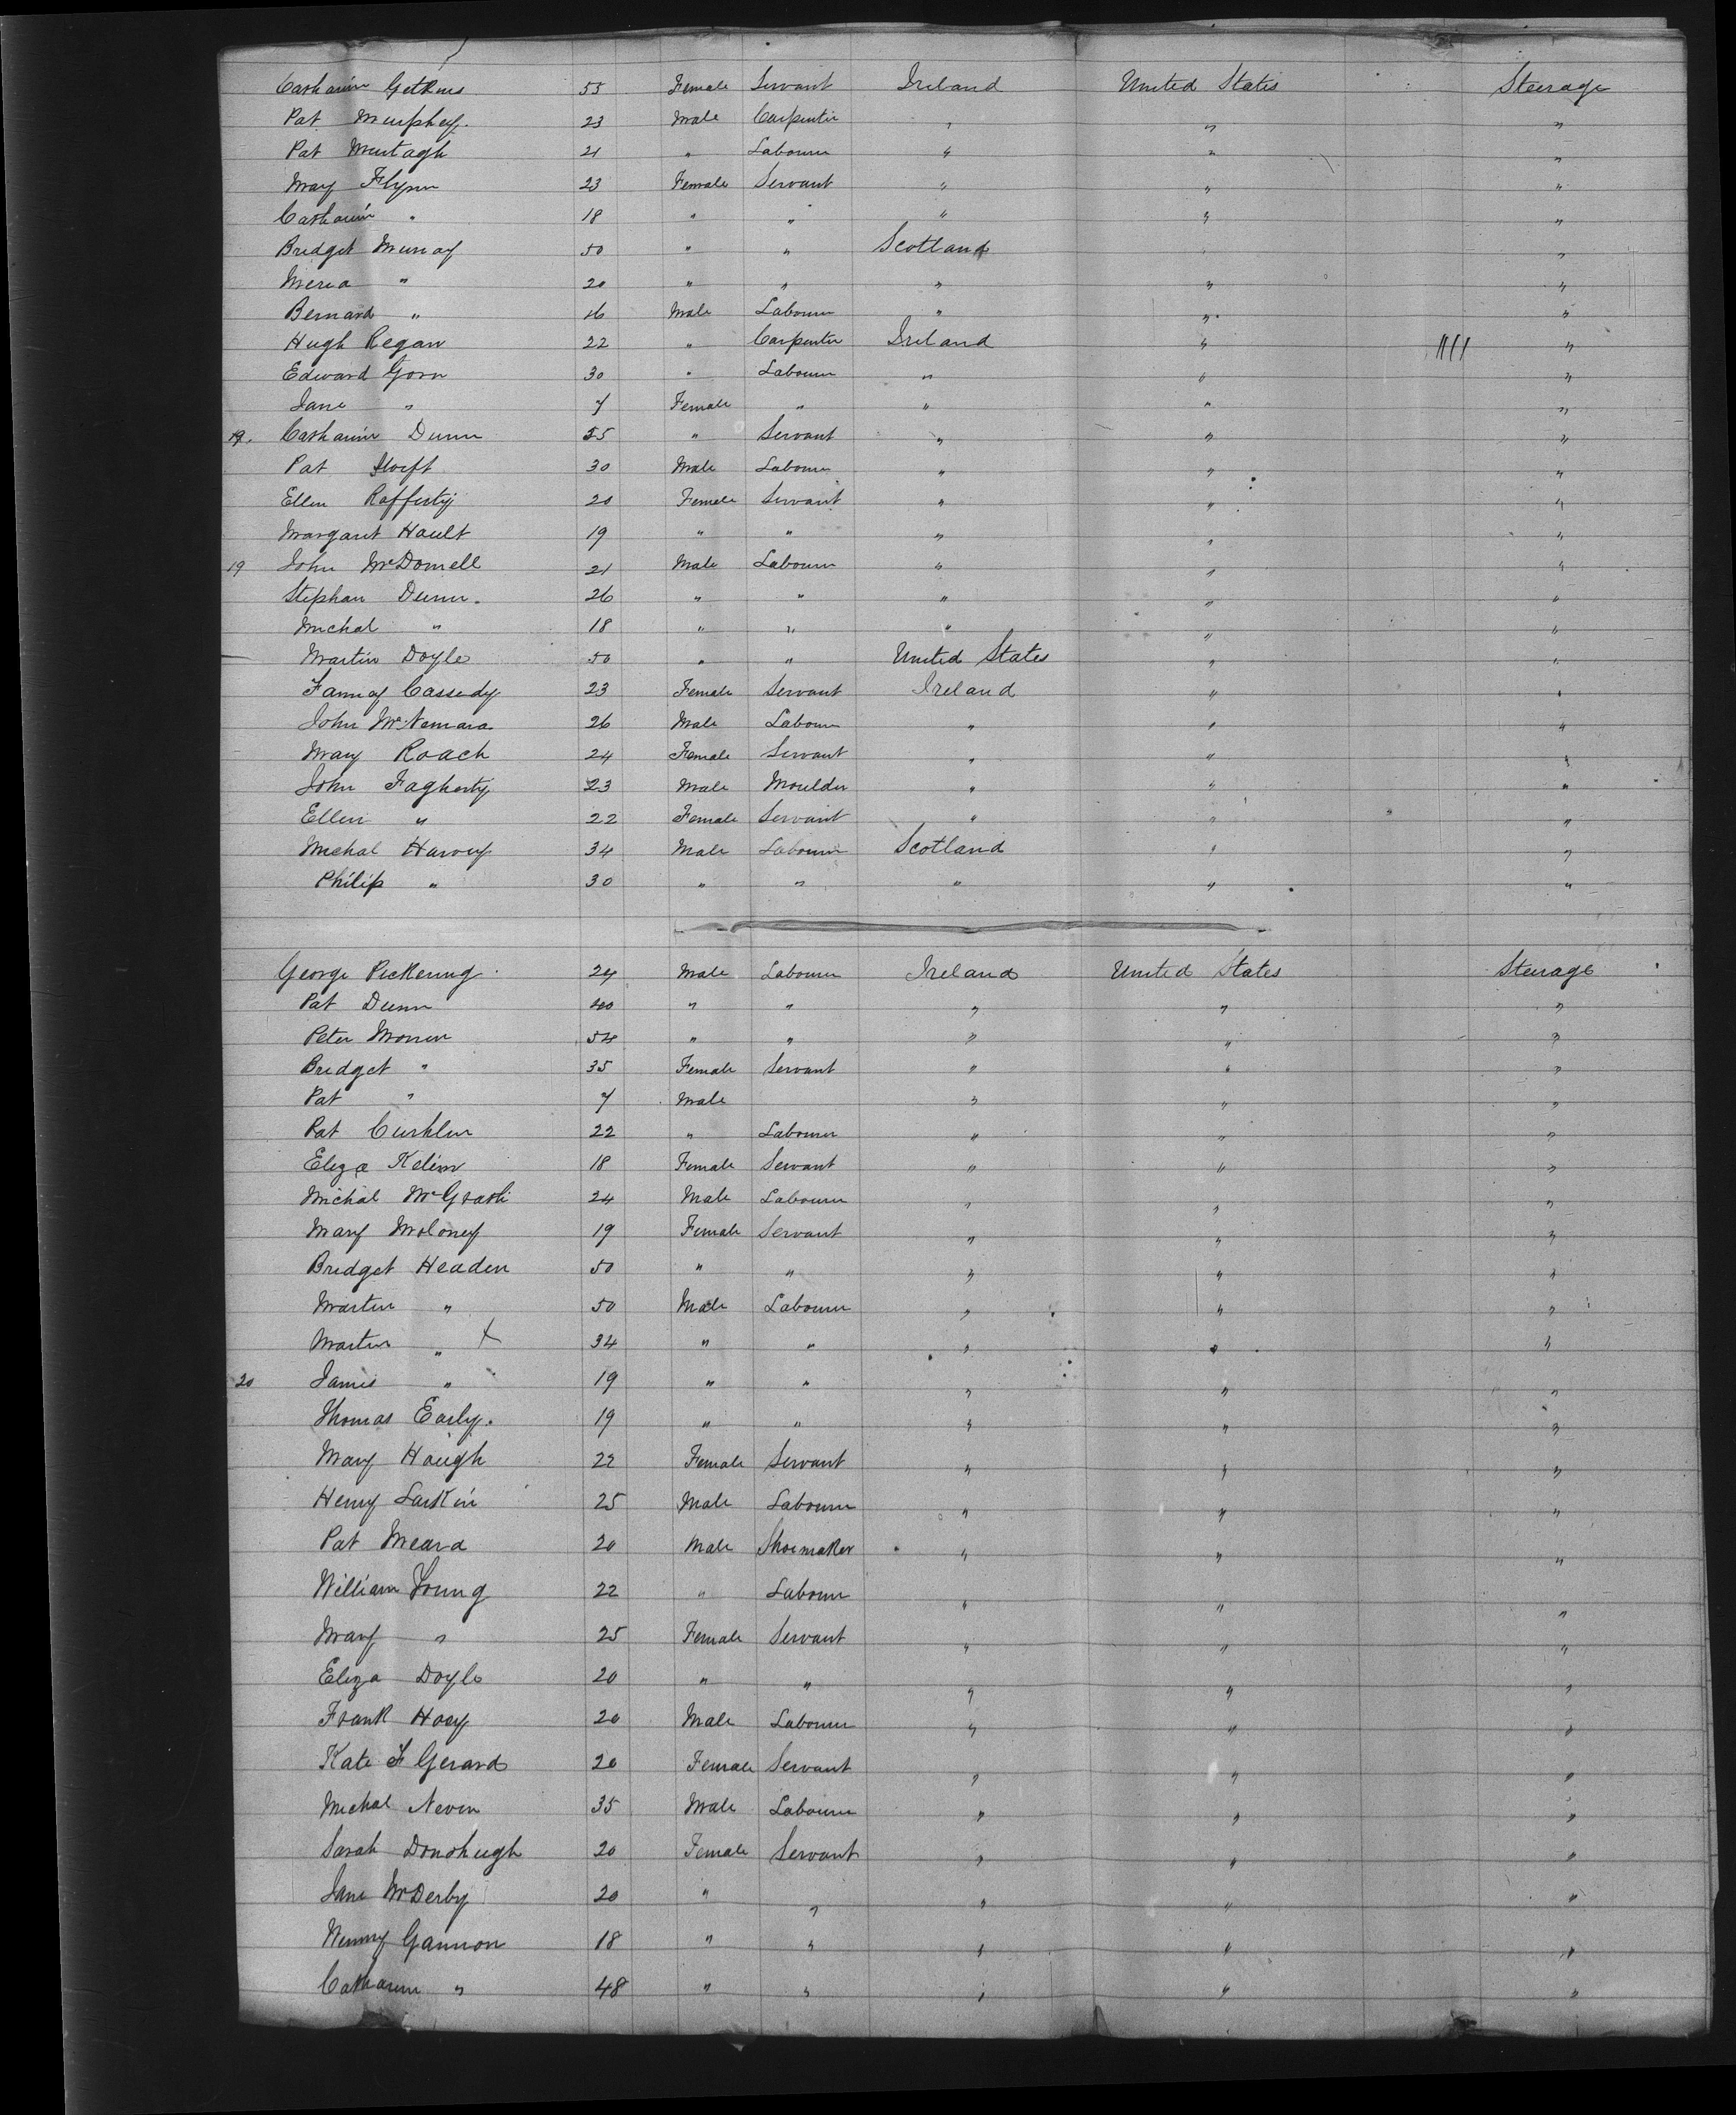 Catharin Getkins 55 Female Servant Ireland United States Steerage
Pat Murphey. 23 Male Carpenter " " "
Pat Murtagh 21 " Labourer " " "
Mary Flynn 23 Female Servant " " "
Catharin " 18 " " " " "
Bridget Murray 50 " " Scotland " "
Meria " 20 " " " " "
Bernard " 16 Male Labourer " " "
Hugh Regan 22 " Carpenter Ireland " "
Edward Gorn 30 " Labourer " " "
Jane " 7 Female " " " "
19. Catharin Dunn 55 " Servant " " "
Pat 30 Male Labourer " " "
Ellen Rafferty 20 Female Servant " " "
Margaret Hault 19 " " " " "
19 John McDonnell 21 Male Labourer " " "
Stephan Dunn. 26 " " " " "
Michal " 18 " " " " "
Martin Doyle 50 " " United States " "
Fanny Cassedy 23 Female Servant Ireland " "
John McNamara 26 Male Labourer " " "
Mary Roach 24 Female Servant " " "
John Fagherty 23 Male Moulder " " "
Ellen " 22 Female Servant " " "
Michal Harvey 34 Male Labourer Scotland " "
Philip " 30 " " " " "
George Pickering 24 Male Labourer Ireland United States Steerage
Pat Dunn 40 " " " " "
Peter 54 " " " " "
Bridget " 35 Female Servant " " "
Pat " 7 Male " " "
Pat 22 " Labourer " " "
Eliza 18 Female Servant " " "
Michal McGrath 24 Male Labourer " " "
Mary Moloney 19 Female Servant " " "
Bridget Headen 50 " " " " "
Martin " 50 Male Labourer " " "
Martin " X 34 " " " " "
20 James " 19 " " " " "
Thomas Early. 19 " " " " "
Mary Haugh 22 Female Servant " " "
Henry Larkin 25 Male Labourer " " "
Pat Meara 20 Male Shoemaker " " "
William Young 22 " Labourer " " "
Mary " 25 Female Servant " " "
Eliza Doyle 20 " " " " "
Frank Hoey 20 Male Labourer " " "
Kate F Gerard 20 Female Servant " " "
Michal Neven 35 Male Labourer " " "
Sarah Donohugh 20 Female Servant " " "
Jane McDerby 20 " " " " "
Gannon 18 " " " " "
Catharin " 48 " " " " "